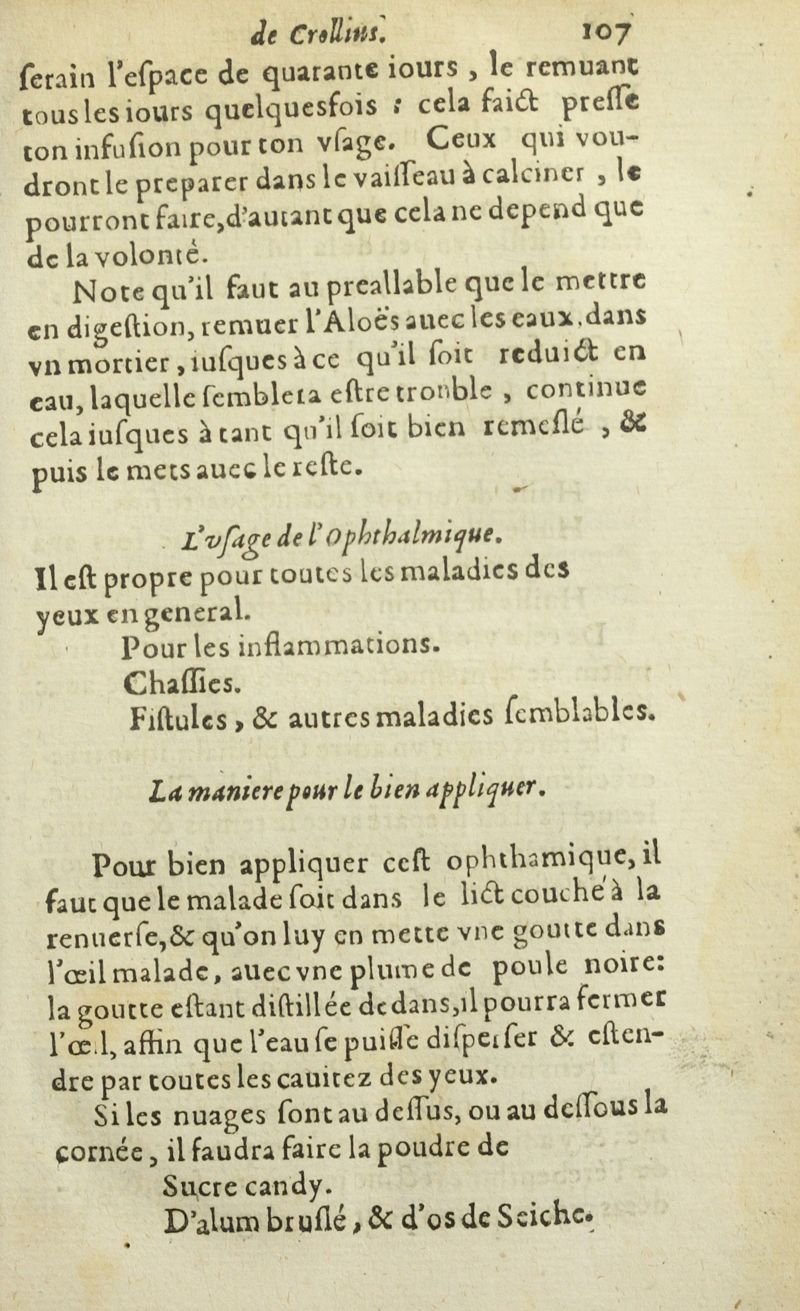 de Crollius. 107
ſerain l'eſpace de quarante iours , le remuant
tous les iours quelquesfois : cela faict preſſe
ton infuſion pour ton vſage. Ceux qui vou-
dront le preparer dans le vaiſſeau à calciner , le
pourront faire, d'autant que cela ne depend que
de la volonté.
Note qu'il faut au preallable que le mettre
en digeſtion, remuer l'Aloës auec les eaux, dans
vn mortier, iuſques à ce qu'il ſoit reduict en
eau, laquelle ſemblera eſtre trouble , continue
cela iuſques à tant qu'il ſoit bien remeſlé , &
puis le mets auec le reſte.
L'vſage de l'Ophthalmique.
Il eſt propre pour toutes les maladies des
yeux en general.
Pour les inflammations.
Chaſſies.
Fiſtules , & autres maladies ſemblables.
La maniere pour le bien appliquer.
Pour bien appliquer ceſt ophthamique, il
faut que le malade ſoit dans le lict couché à la
renuerſe, & qu'on luy en mette vne goutte dans
l'œil malade, auec vne plume de poule noire:
la goutte eſtant diſtillée dedans, il pourra fermer
l'œil, affin que l'eau ſe puiſſe diſperſer & eſten-
dre par toutes les cauitez des yeux.
Si les nuages ſont au deſſus, ou au deſſous la
cornée , il faudra faire la poudre de
Sucre candy.
D'alum bruſlé , & d'os de Seiche.